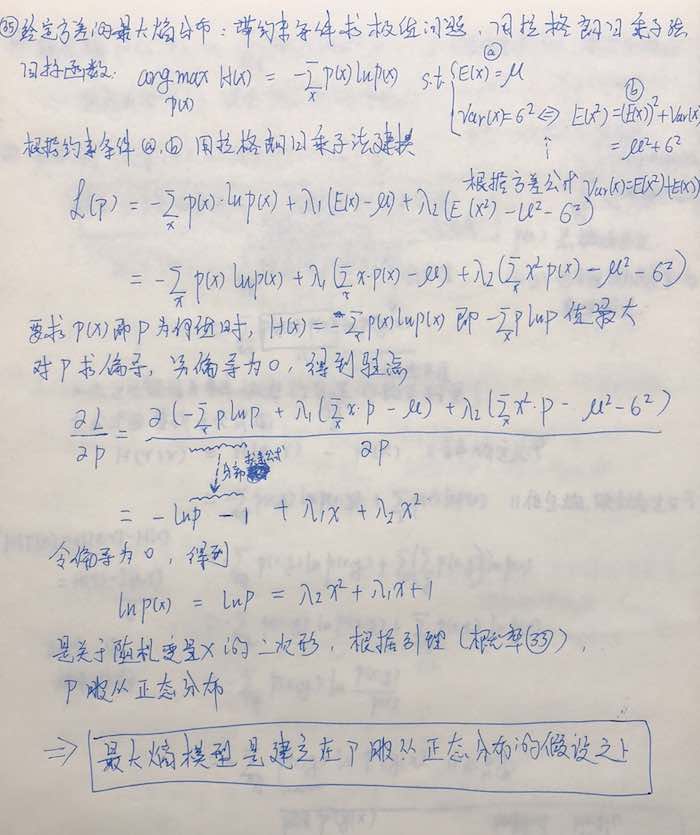 ㉟ 给定方差的最大熵分布：带约束条件求极值问题，用拉格朗日乘子法
目标函数: argmax H(x) = -∑ p(x) lnp(x) s.t. { E(x) = μ ⓐ
p(x) x
Var(x)=6² ⇔ E(x²)=(E(x))²+Var(x) ⓑ
= μ²+6²
根据约束条件 ⓐ,ⓑ 用拉格朗日乘子法建模
根据方差公式 Var(x)=E(x²)-(E(x))
L(p) = -∑ p(x)·lnp(x) + λ₁(E(x)-μ) + λ₂(E(x²)-μ²-6²)
= -∑ p(x) lnp(x) + λ₁(∑ x·p(x) - μ) + λ₂(∑ x² p(x) - μ²-6²)
要求 P(x) 即 P 为何值时, H(x) = -∑ p(x) lnp(x) 即 -∑ p lnp 值最大
对 P 求偏导, 另偏导为 0, 得到驻点
∂L/∂p = ∂(-∑ p lnp + λ₁(∑ x·p - μ) + λ₂(∑ x²·p - μ²-6²)/∂p
分部求导公式
= -lnp - 1 + λ₁x + λ₂x²
令偏导为 0, 得到
lnp(x) = lnp = λ₂x²+λ₁x+1
是关于随机变量 X 的二次形, 根据引理 (概率㉝),
P 服从正态分布
⇒ 最大熵模型是建立在 P 服从正态分布的假设之上